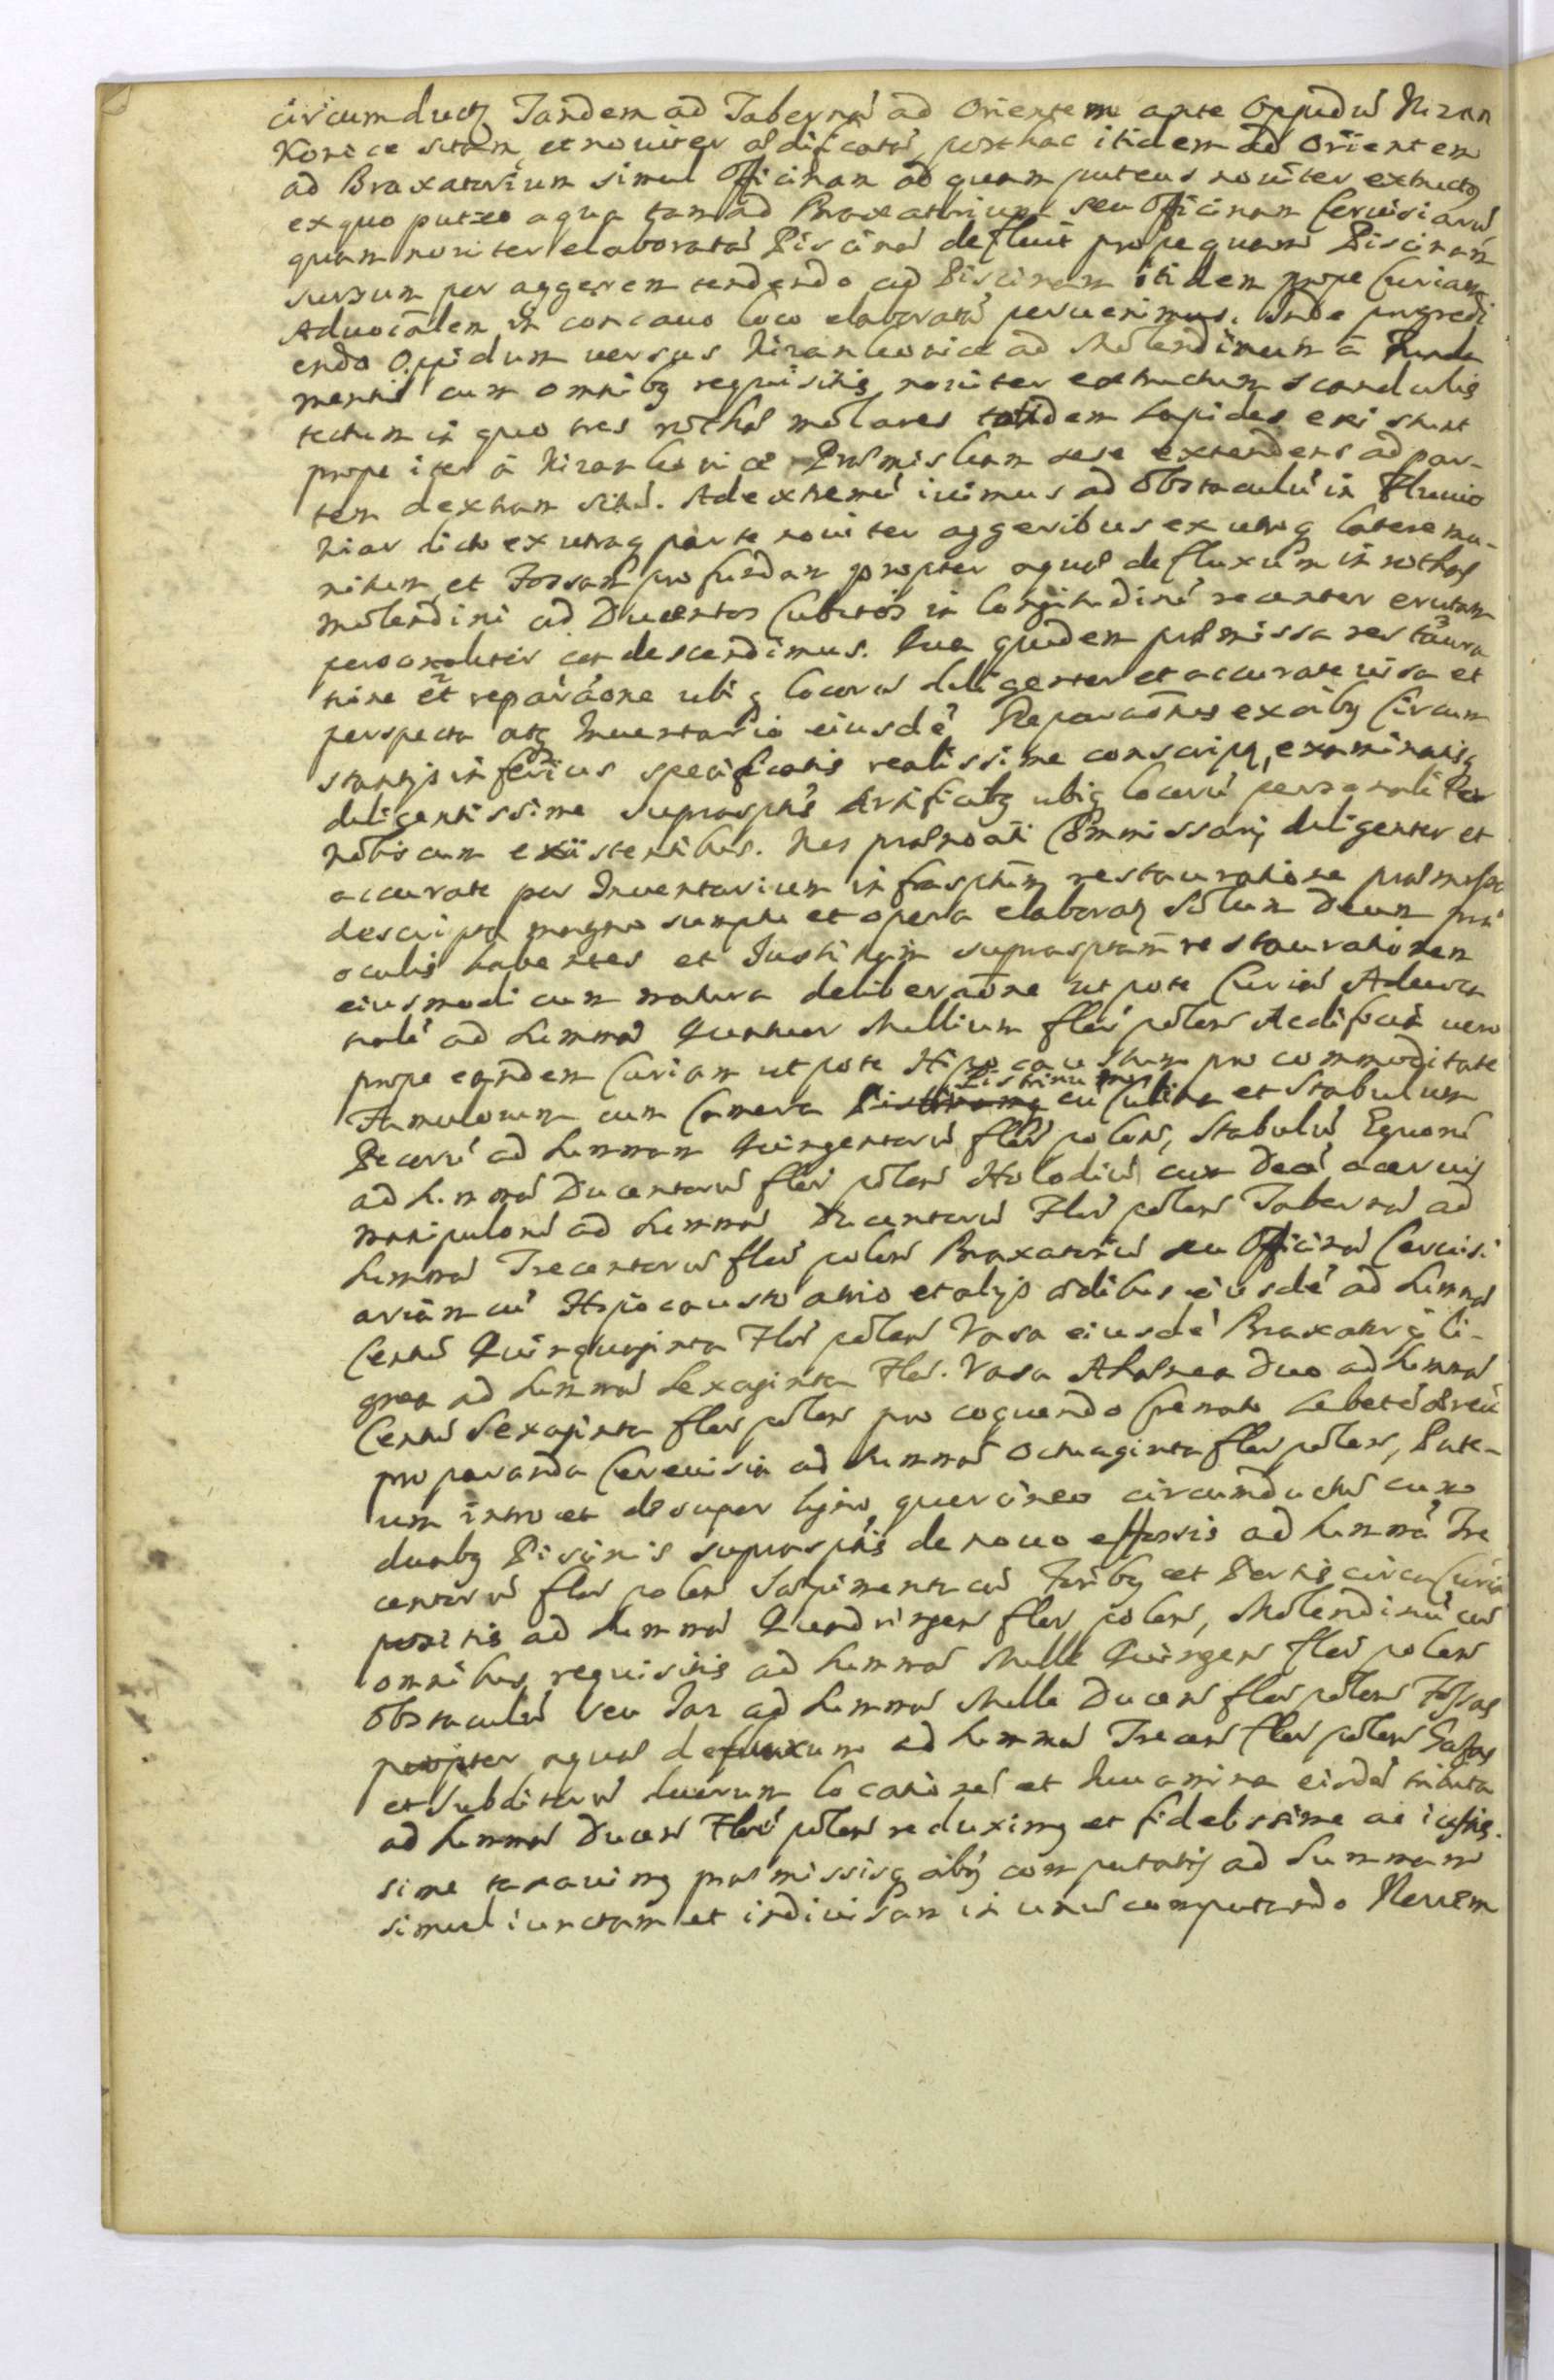 circumductꝫ Tandem ad Tabernã ad Orientem ante Oppidũ Nizan
Konice sitam, et noviter ædificatã, posthac itidem ad Orientem
ad Braxatorium simul Officinam ad quam puteus noviter extructꝰ
ex quo puteo aqua tam ad Braxatorium seu Officinam Cervisiariã
quam noviter elaboratã Piscinã defluit prope quam Piscinam
sursum per aggerem tendendo ad Piscinam itidem prope Curiam
Advocãlem in concavo loco elaboratã pervenimus. Inde progredi
endo Oppidum versus Nizankonice ad Molendinum a Funda
mentis cum omnibꝫ requisitis noviter extructum scandulis
tectum in quo tres rothæ molares totidem lapides existunt
prope iter a Nizankonice Præmisliam sese extendens ad par-
tem dextram sitũ. Ad extremũ ivimus ad Obstaculũ in Fluvio
Wiar dicto ex utraqꝫ parte noviter aggeribus ex utroqꝫ latere mu-
nitum et Fossam profundam propter aquæ defluxum in rothas
molendini ad Ducentos Cubitos in longitudine recenter erutam
personaliter condescendimus. Qua quidem præmissa restaura
tione et reparãone ubiqꝫ locorũ diligenter et accurate visa et
perspecta atqꝫ Inventario eiusdẽ Reparaõnis ex oĩbꝫ Circum
stantijs inferius specificatis realissime conscriptꝫ, examinatisqꝫ
diligentissime suprasptĩs Artificibꝫ ubiqꝫ locorũ personaliter
nobiscum existentibus. Nos prænoãti Commissarij diligenter et
accurate per Inventarium infrasptũm restauratione præmissa
descripta magno sumptu et opera elaboratꝫ solum Deum præ
oculis habentes et Justitiam suprasptam restaurationem
eiusmodi cum matura deliberaõne utpote Curiã Advoca
tialẽ ad Summã Quatuor Millium flor põlon Aedificia vero
prope eandem Curiam utpote Hipocaustum pro commoditate
Pistrinum
Famulorum cum Camera cũ Culina et Stabulum
Pecorũ ad Summam Quingentorũ flor polon, Stabulũ Equorũ
ad Summã Ducentorũ flor põlon Holodiũ cum Decẽ acervis
manipulorũ ad Summã Ducentorũ Flor põlon Tabernã ad
Summã Trecentorũ flor polon Braxatoriũ seu Officinã Cervisi
ariam cũ Hipocausto atrio et alijs ædibus eiusdẽ ad Summã
Centũ Quinquaginta Flor põlon Vasa eiusdẽ Braxatorij li-
gnea ad Summã Sexaginta Flor. Vasa Ahænea Duo ad Summã
Centũ Sexaginta flor põlon pro coquendo Cremato Lebetẽ æreũ
pro paranda Cerevisia ad Summã Octuaginta flor põlon, Pute-
um intro et desuper ligno quercineo circumductũ cum
duabꝫ Piscinis suprasptĩs de novo effossis ad Summã Tre
centorũ flor polon Sæpimenta cũ Foribꝫ et Portis circa Curiã
positis ad Summã Quadringen flor polon, Molendinũ cũ
omnibus requisitis ad Summã Mille Quingen flor polon
Obstaculũ seu Jaz ad Summã Mille Ducen flor põlon Fossas
propter aquæ defluxum ad Summã Trecen flor põlon
et Subditorũ locationes et eisdẽ tributa
ad Summã Ducen Flor põlon reduximꝰ et fidelissime ac iustis-
sime taxavimꝰ præmissisqꝫ oĩbꝫ computatis ad Summam
simul iunctam et indivisam in unũ computando Novem